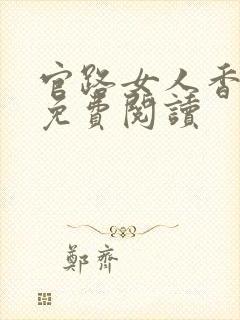 官路女人香
免費閱讀
鄭齊